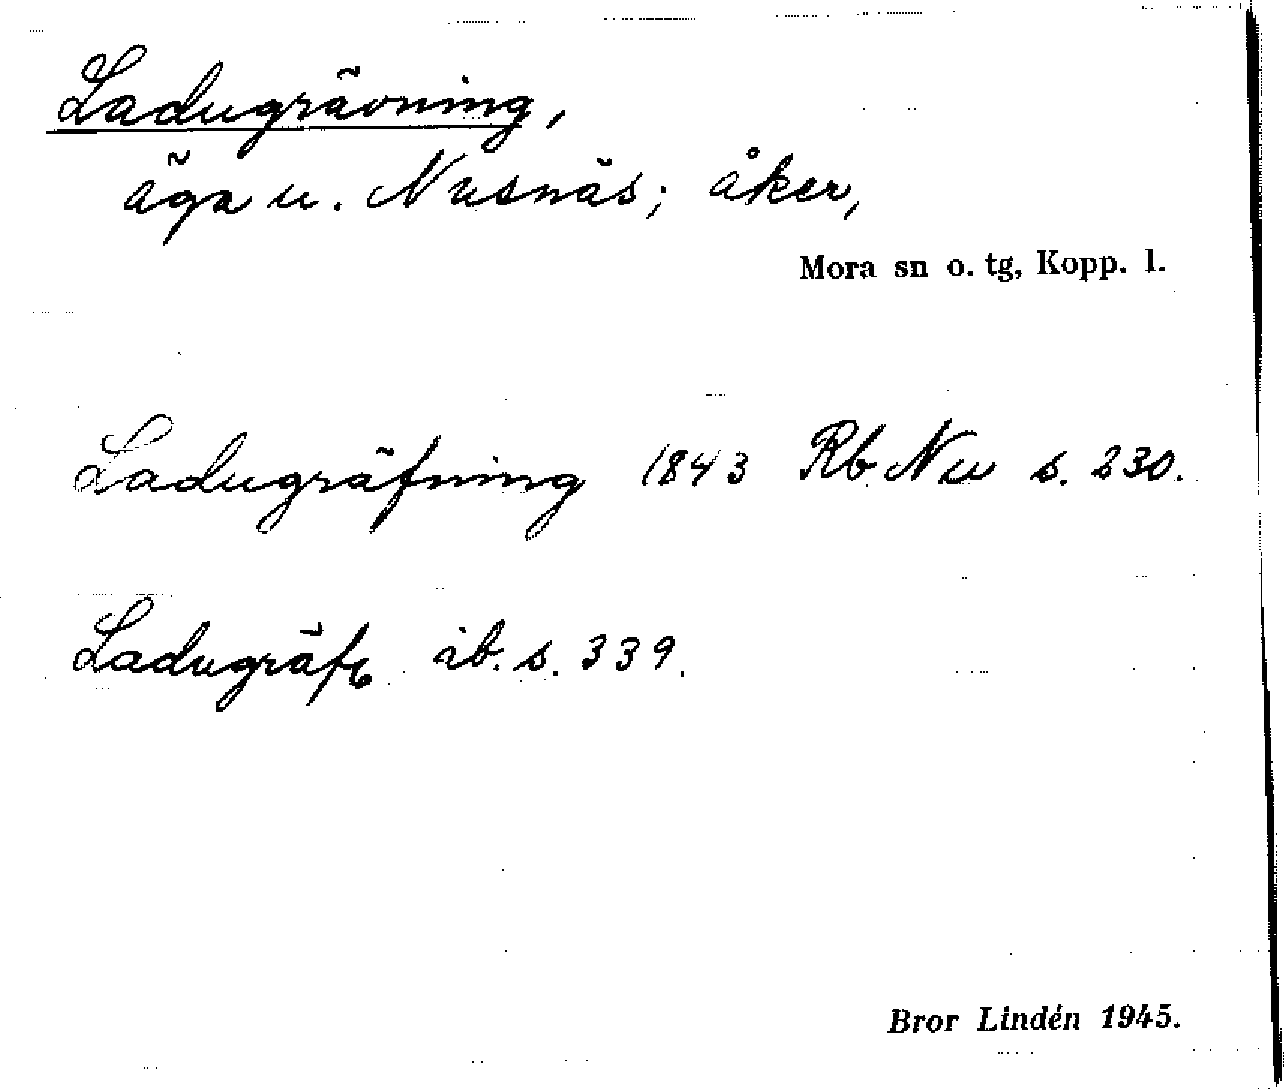 Ladugrävning,
äga u. Nusnäs; åker,
Mora sn o. tg, Kopp. l.
Ladugräfning 1843 Rb Nu s. 230.
Ladugräfe ib. s. 339.
Bror Lindén 1945.